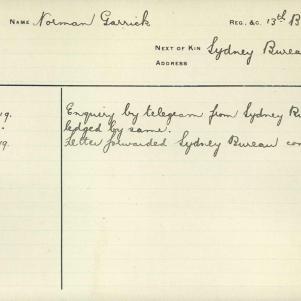 NAME Norman Garrick REG. &C. 13th B
NEXT OF KIN Sydney Burea
ADDRESS
19. Enquiry by telegram from Sydney
ledged by same.
19. Letter forwarded Sydney Bureau con